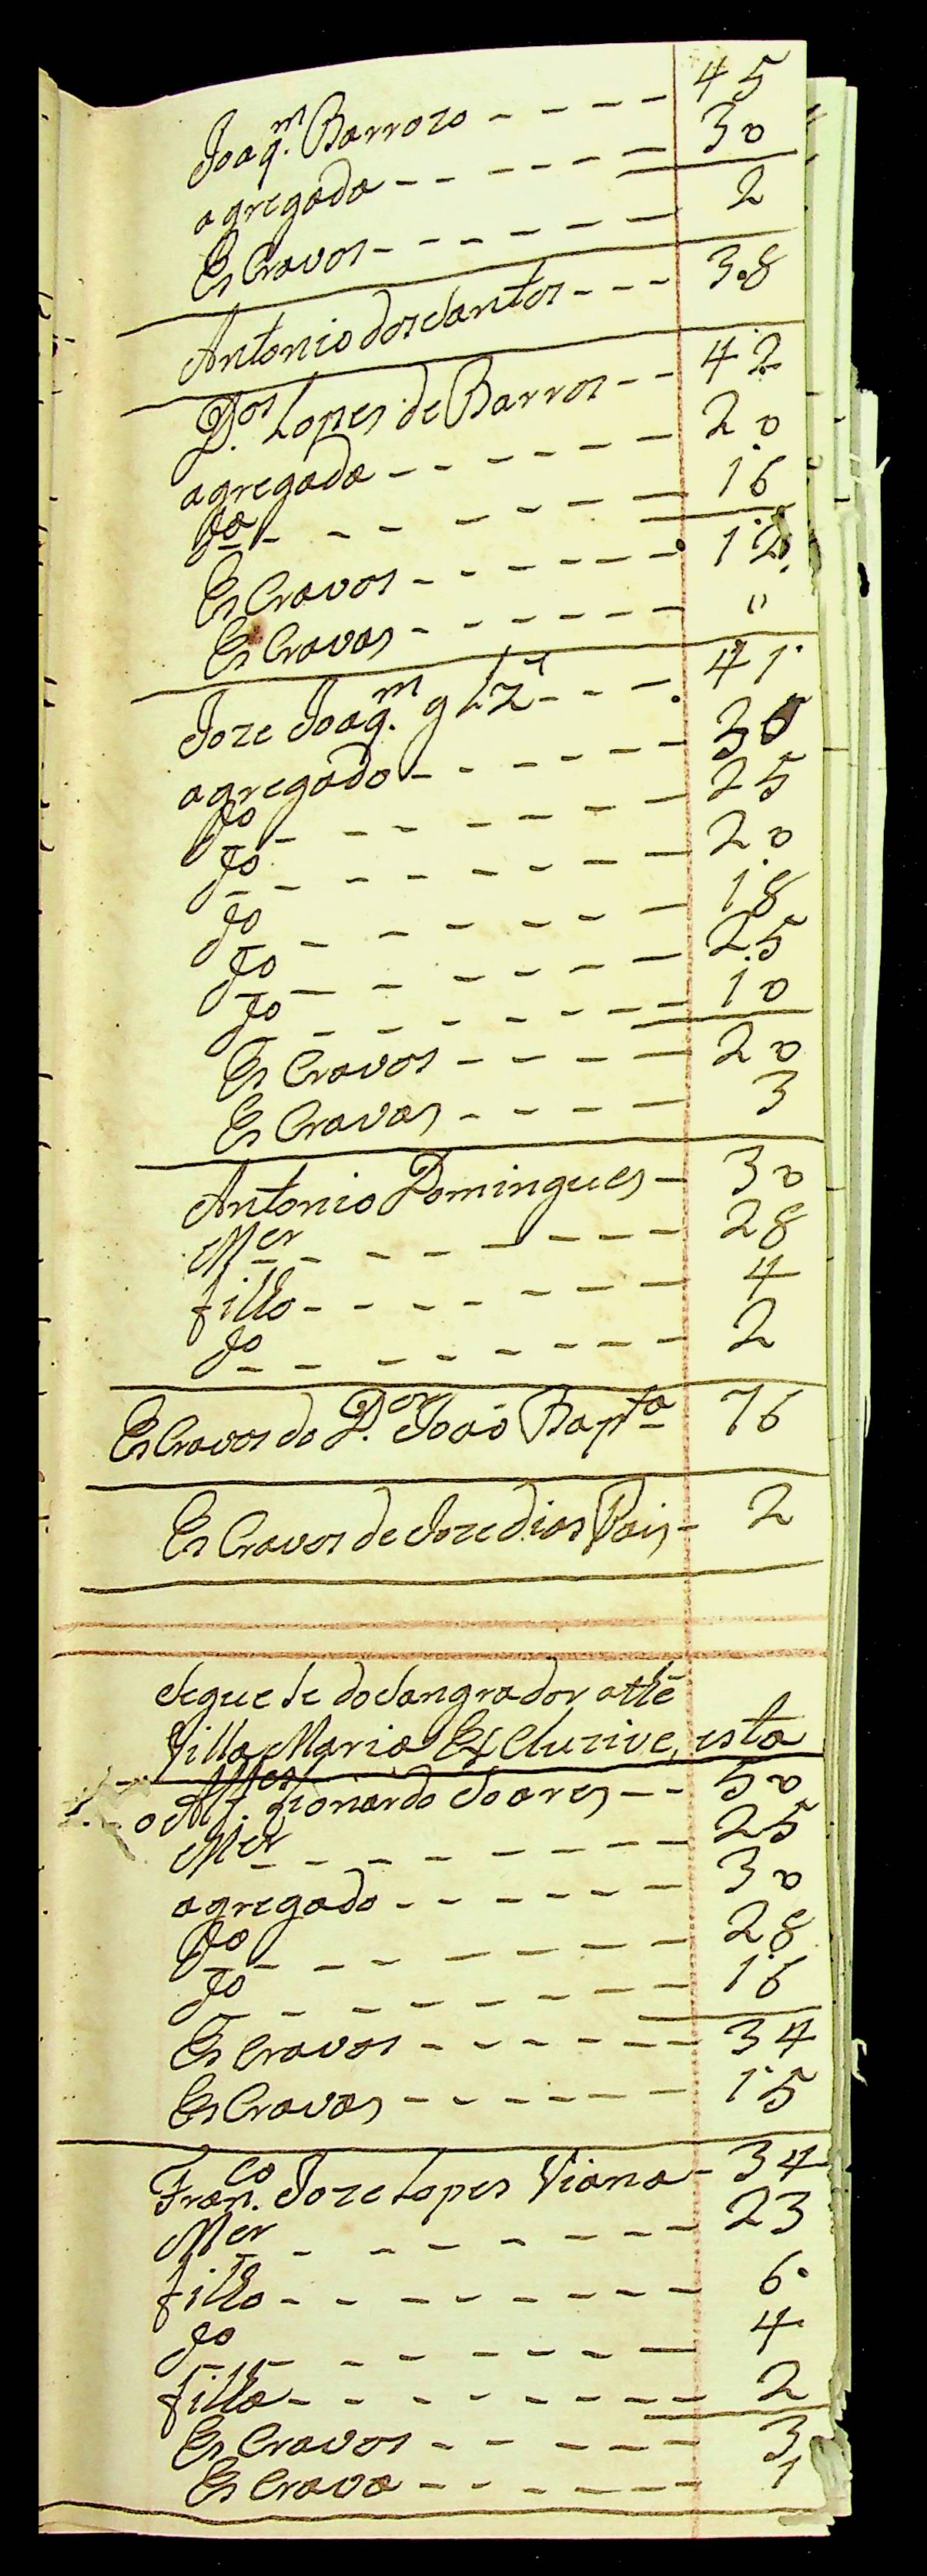 Joaq.m Barrozo - - - - 45
agregada - - - - - - 30
EsCravos - - - - - - 2
Antonio dos Santos - - - 38
D.os Lopes de Barros - - 42
agregada - - - - - - 20
da - - - - - - 16
EsCravos - - - - - - 12
EsCravas - - - - - - "
Joze Joaq.m glz - - - 41
agregado - - - - - - 30
do - - - - - - 25
do - - - - - - 20
do - - - - - - 18
do - - - - - - 25
do - - - - - - 10
EsCravos - - - - 20
EsCravas - - - - 3
Antonio Domingues - 30
Mer - - - - - - - 28
fillo - - - - - - - 4
do - - - - - - - 2
EsCravos do D.or João Bapta 76
EsCravos de Joze dias Pais - 2
Segue se do Sangrador atte
Villa Maria Excluzive, esta
o Alf.es Lionardo Soares - - 50
Mer - - - - - - - 25
agregado - - - - - - 30
do - - - - - - - 28
do - - - - - - - 16
EsCravos - - - - - - 34
EsCravas - - - - - - 15
Fran.co Joze Lopes Viana - 34
Mer - - - - - - - 23
fillo - - - - - - - - 6
do - - - - - - - 4
filla - - - - - - - - 2
EsCravos - - - - - - 3
EsCrava - - - - - - 1